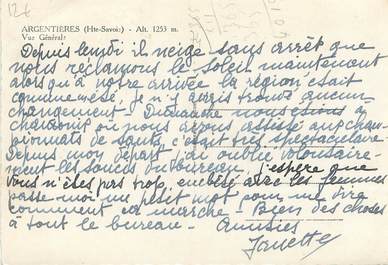 126
ARGENTIÈRES (Hte-Savoie) - Alt. 1253 m.
Vue Générale
Depuis lundi il neige sans arrêt que
nous réclamons le soleil maintenant
alors qu'à notre arrivée la région était
comme à je n'y avais trouvé aucun
changement - Dimanche nous étions à
chamonix où nous avons assisté aux cham-
pionnats de sauts, c'était très spectaculaire
Depuis mon départ, j'ai oublié volontaire-
ment les soucis du bureau, j'espère que
vous n'êtes pas trop embêté avec les femmes
passe moi un petit mot pour me dire
comment ça marche - Bien des choses
à tout le bureau - Amitiés